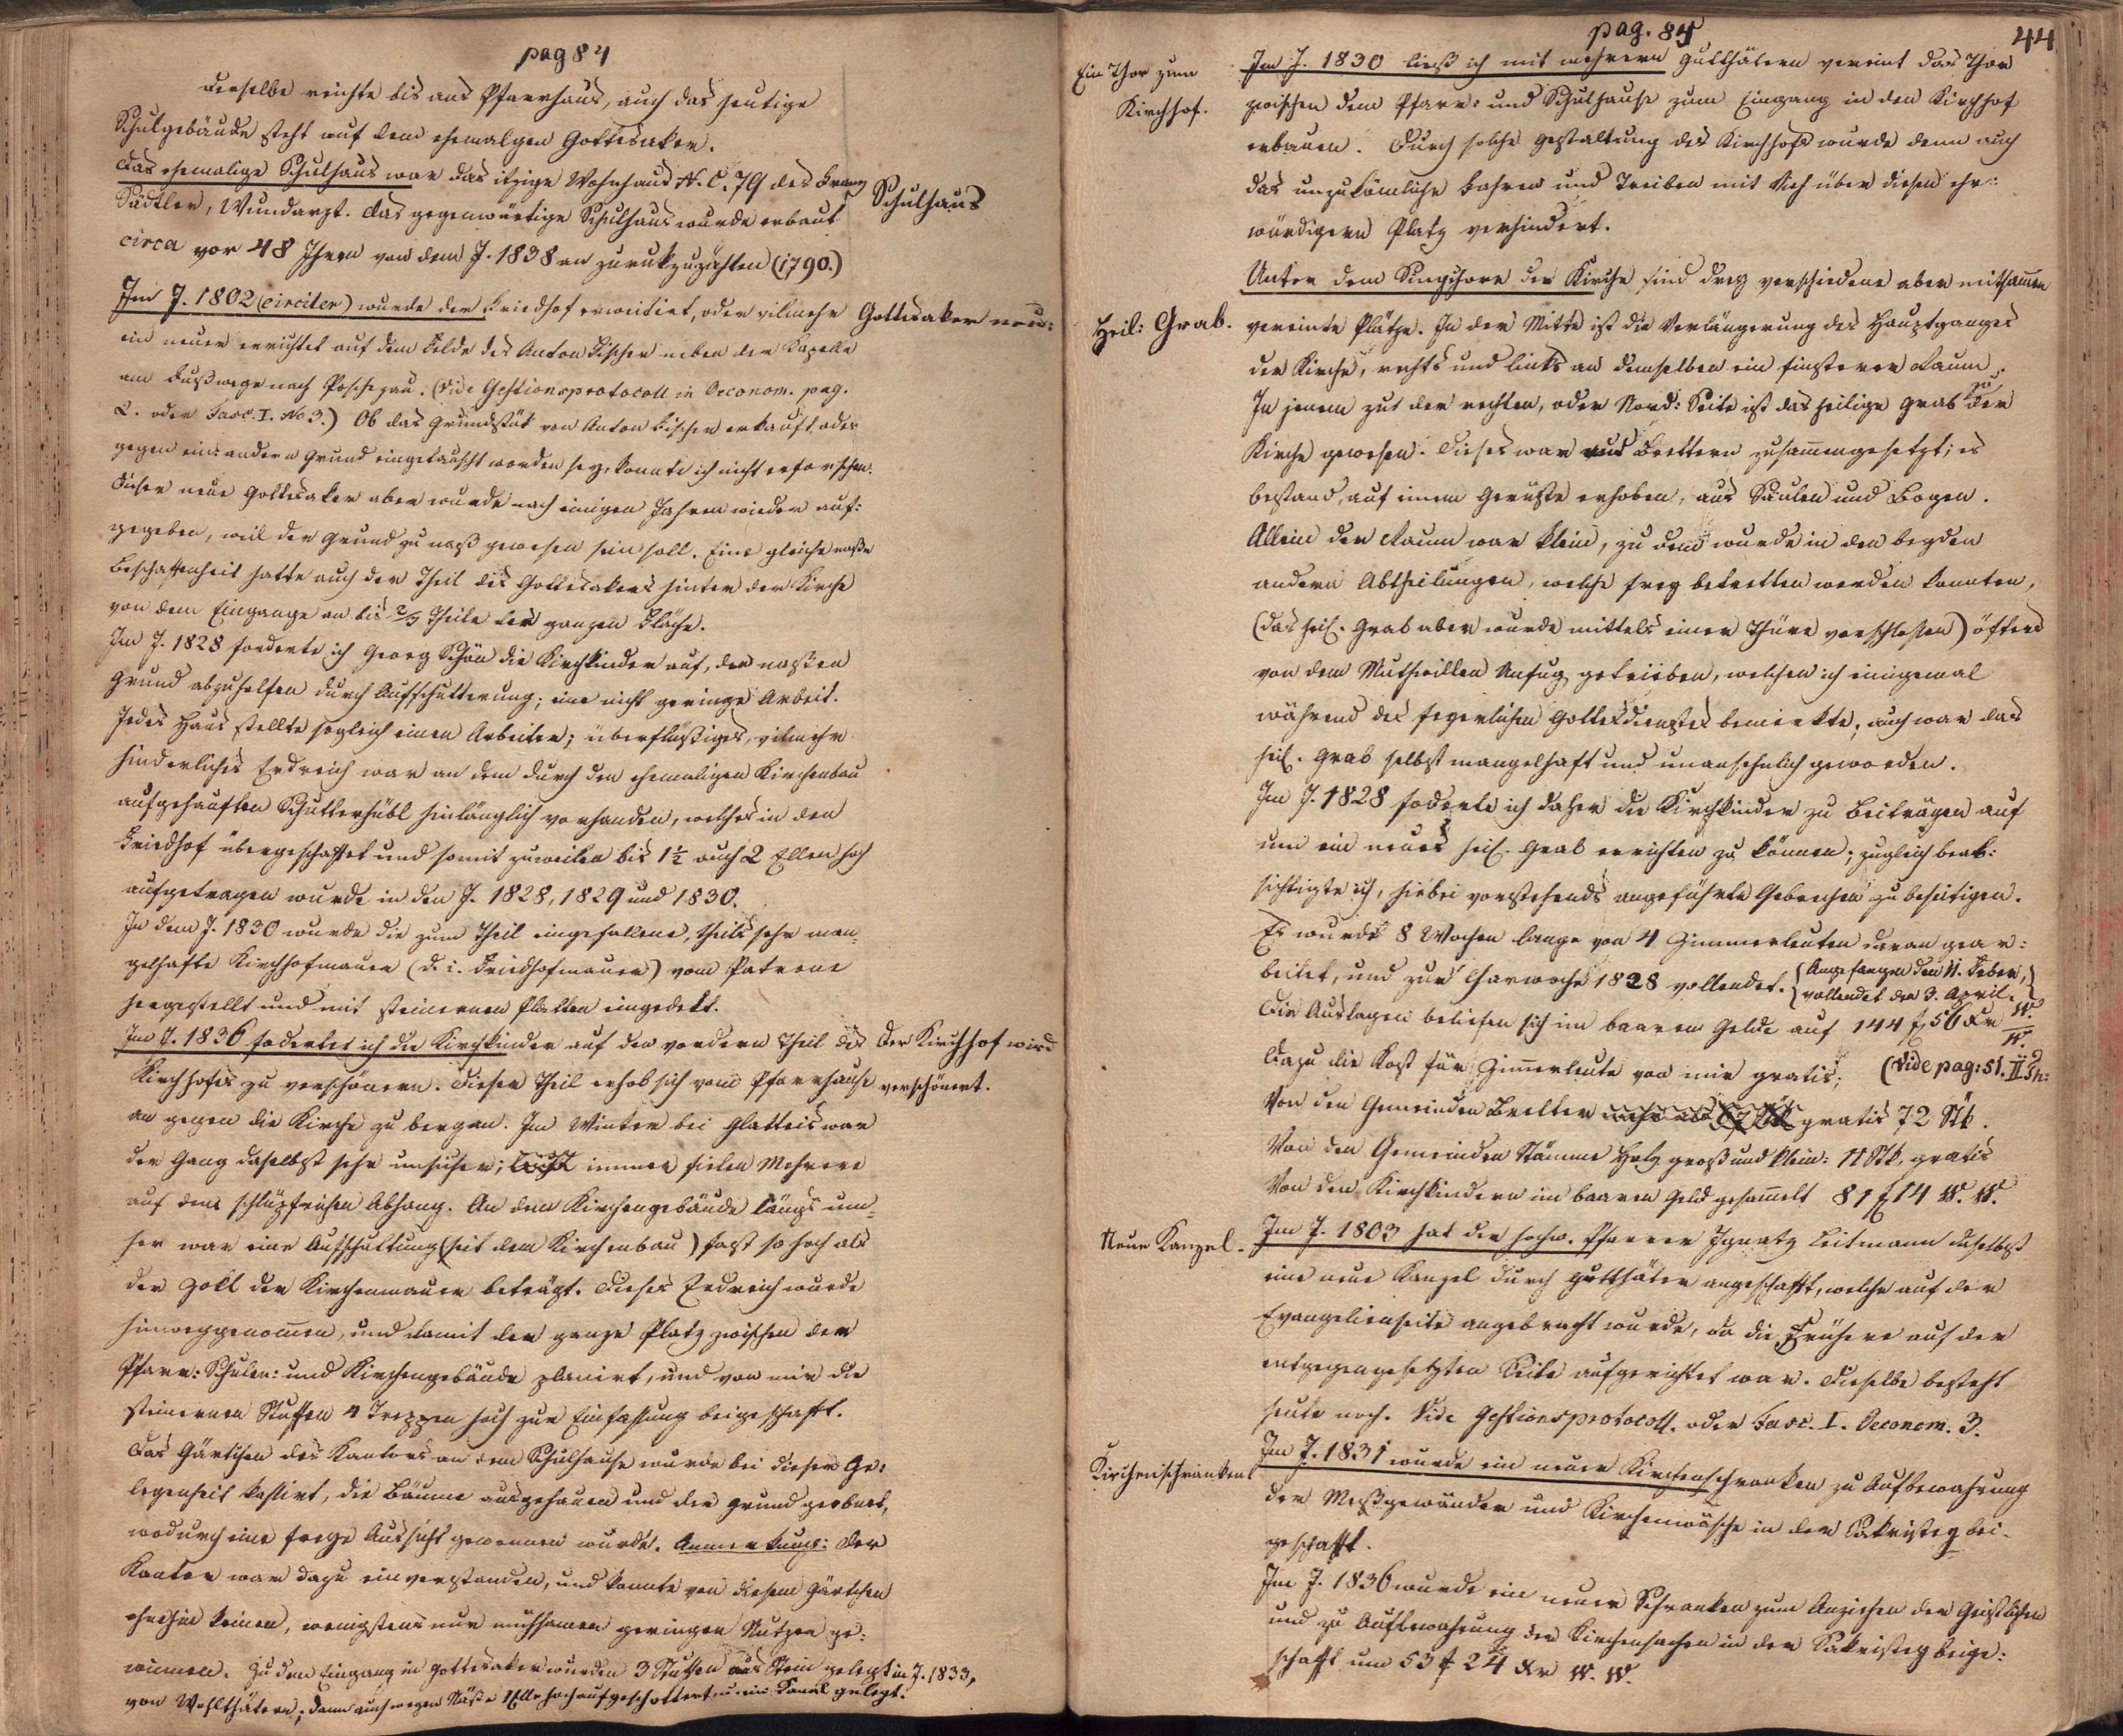 pag 84
Derselbe reichte bis ans Pfarrhaus, auch das heutige
Schulgebäude steht auf dem ehemalgen Gottesaker.
Das ehemalige Schulhaus war das itzige Wohnhaus N. C. 79 des Franz
Sadtler, Wundarzt. Das gegenwärtige Schulhaus wurde erbaut
Schulhaus
circa vor 48 Jhren von dem J. 1838 an zurukzuzählen (1790.)
Im J. 1802 (circiter) wurde der Friedhof erweitert, oder vilmehr
Gottesaker neu:
ein neuer errichtet auf dem Felde des Anton Fischer neben der Kapelle
am Fußwege nach Poschezau. (Vide Gestionsprotocoll in Oeconom. pag.
2. oder Fasc. I. No 3.) Ob das Grundstük von Anton Fischer erkauft oder
gegen eine andern Grund eingetauscht worden sey, konnte ich nicht erforschen.
Dieser neue Gottesaker aber wurde nach einigen Jahren wieder auf:
gegeben, weil der Grund zu naß gewesen sein soll. Eine gleiche naße
Beschaffenheit hatte auch der Theil des Gottesakers hinter der Kirche
von dem Eingange an bis 2/3 Theile der ganzen Fläche.
Im J. 1828 forderte ich Georg Schön die Kirchkinder auf, den naßen
Grund abzuhelfen durch Aufschutterung; eine nicht geringe Arbeit.
Jedes Haus stellte sogleich einen Arbeiter; überflüßiges, vilmehr
hinderliches Erdreich war an dem durch den ehemaligen Kirchenbau
aufgehauften Schutterhübl hinlänglich vorhanden, welches in den
Friedhof übergeschaffet und somit zuweilen bis 1½ auch 2 Ellen hoch
aufgetragen wurde in den J. 1828, 1829 und 1830.
In dem J. 1830 wurde die zum Theil eingefallene, theils sehr man-
gelhafte Kirchhofmauer (d. i. Friedhofmauer) vom Patrone
hergestellt und mit steinernen Platten eingedekt.
Im J. 1836 foderte ich die Kirchkinder auf den vordern Theil des
Der Kirchhof wird
Kirchhofes zu verschönern. Dieser Theil erhob sich vom Pfarrhause
verschönert.
an gegen die Kirche zu bergan. Im Winter bei Glatteis war
der Gang daselbst sehr unsicher; immer fielen Mehrere
auf dem schlüpfrichen Abhang. An dem Kirchengebäude längs um-
her war eine Aufschuttung (seit dem Kirchenbau) fast so hoch als
der Zokl der Kirchenmauer beträgt. Dieses Erdreich wurde
hinweggenom̄en, und damit der ganze Platz zwischen dem
Pfarr: Schulen: und Kirchengebäude planirt, und von mir die
steinernen Stuffen 4 Treppen hoch zur Einfassung beigeschafft.
Das Gärtchen des Kantors an dem Schulhause wurde bei dieser Ge:
legenheit kassirt, die Bäume ausgehauen und der Grund geebnet,
wodurch eine freye Aussicht gewonnen wurde. Anmerkung: Der
Kantor war dazu einverstanden, und konnte von diesem Gärtchen
ohnehin keinen, wenigstens nur mühsamen geringen Nutzen ge:
winnen. Zu dem Eingang in Gottesaker wurden 3 Stuffen aus Stein gelegt im J. 1833,
von Wohlthätern; dann auch wegen Näße 1 Elle hoch aufgeschottert, u. ein Kanal gelegt.
pag. 84
44
Ein Thor zum
Kirchhof.
Im J. 1830 ließ ich mit mehrern Gutthätern vereint das Thor
zwischen dem Pfarr: und Schulhause zum Eingang in den Kirchhof
erbauen. Durch solche Gestaltung des Kirchhofs wurde denn auch
das unzukömliche Fahren und Treiben mit Vieh über diesen ehr:
würdigern Platz verhindert.
Unter dem Singchore der Kirche sind drey verschiedene aber mitsam̄en
Heil: Grab.
vereinte Plätze. In der Mitte ist die Verlängerung des Hauptganges
der Kirche, rechts und links an demselben ein finsterer Raum.
In jenem zu der rechten, oder Nord: Seite ist das heilige Grab der
Kirche gewesen. Dieses war aus Brettern zusam̄engesetzt; es
bestand, auf einem Gerüste erhoben, aus Säulen und Bogen.
Allein der Raum war klein, zu dem wurde in den beyden
andern Abtheilungen, welche frey betretten werden konnten,
(das heil. Grab aber wurde mittels einer Thüre verschloßen) öfters
von dem Muthwillen Unfug getrieben, welchen ich einigemal
während des feyerlichen Gottesdienstes bemerkte; auch war das
heil. Grab selbst mangelhaft und unansehnlich geworden.
Im J. 1828 foderte ich daher die Kirchkinder zu Beiträgen auf
um ein neues heil. Grab errichten zu können; zugleich beab:
sichtigte ich, hiebei vorstehends angeführte Gebrechen zu beseitigen.
Es wurde 8 Wochen lange von 4 Zimmerleuten daran gear:
beitet, und zur Charwoche 1828 vollendet. (Angefangen den 11. Feber,
vollendet den 3. April.)
Die Auslagen beliefen sich im baaren Gelde auf 144 f 56 Kr W. W.
Dazu die Kost für Zim̄erleute von mir gratis; (Vide pag: 51. II Th:
Von den Gemeinden Bretter gratis 72 Stk.
Von den Gemeinden Stämme Holz groß und klein: 11 Stk. gratis
Von den Kirchkindern im baaren Geld gesam̄elt 81 f 14 W. W.
Neue Kanzel.
Im J. 1803 hat der hochw. Pfarrer Ignatz Leitmann daselbst
eine neue Kanzel durch Gutthäter angeschafft, welche auf der
Evangelienseite angebracht wurde, da die Frühere auf der
entgegengesetzten Seite aufgerichtet war. Dieselbe besteht
heute noch. Vide Gestionsprotocoll. oder Fasc. I. Oeconom. 3.
Kirchenschranken
Im J. 1831 wurde ein neuer Kirchenschranken zu Aufbewahrung
der Meßgewänder und Kirchenwäsche in der Sakristey bei-
geschafft.
Im J. 1836 wurde ein neuer Schranken zum Anziehen der Geistlichen
und zu Aufbewahrung der Kirchensachen in der Sakristey beige:
schafft um 53 f 24 Kr W. W.